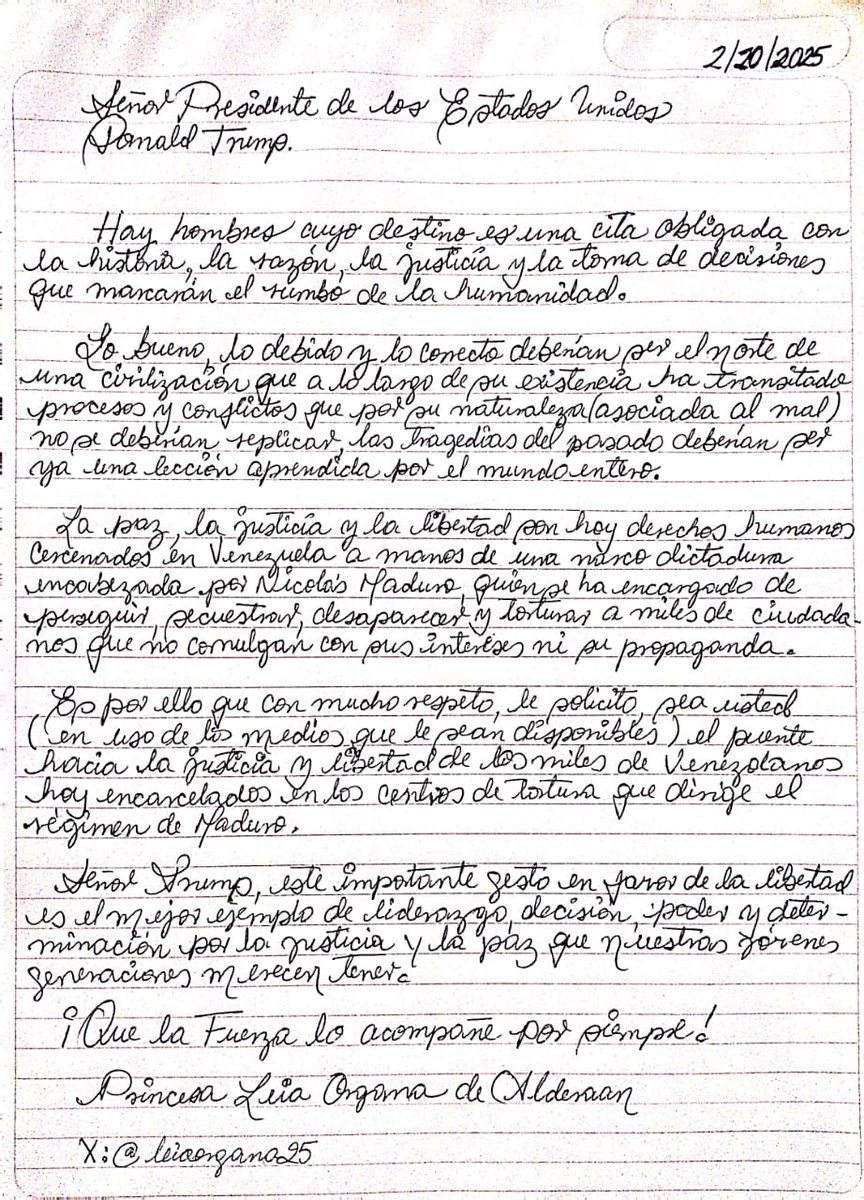 2/20/2025
Señor Presidente de los Estados Unidos
Donald Trump.
Hay hombres cuyo destino es una cita obligada con
la historia, la razón, la justicia y la toma de decisiones
que marcarán el rumbo de la humanidad.
Lo bueno, lo debido y lo correcto deberían ser el norte de
una civilización que a lo largo de su existencia ha transitado
procesos y conflictos que por su naturaleza (asociada al mal)
no se deberían replicar, las tragedias del pasado deberían ser
ya una lección aprendida por el mundo entero.
La paz, la justicia y la libertad son hoy derechos humanos
cercenados en Venezuela a manos de una narco dictadura
encabezada por Nicolás Maduro, quien se ha encargado de
perseguir, secuestrar, desaparecer y torturar a miles de ciudada-
nos que no comulgan con sus intereses ni su propaganda.
Es por ello que con mucho respeto, le solicito, sea usted
(en uso de los medios que le sean disponibles) el puente
hacia la justicia y libertad de los miles de Venezolanos
hoy encarcelados en los centros de tortura que dirige el
régimen de Maduro.
Señor Trump, este importante gesto en favor de la libertad
es el mejor ejemplo de liderazgo, decisión, poder y deter-
minación por la justicia y la paz que nuestras jóvenes
generaciones merecen tener.
¡Que la Fuerza lo acompañe por siempre!
Princesa Leia Organa de Alderaan
X: @leiaorgana25